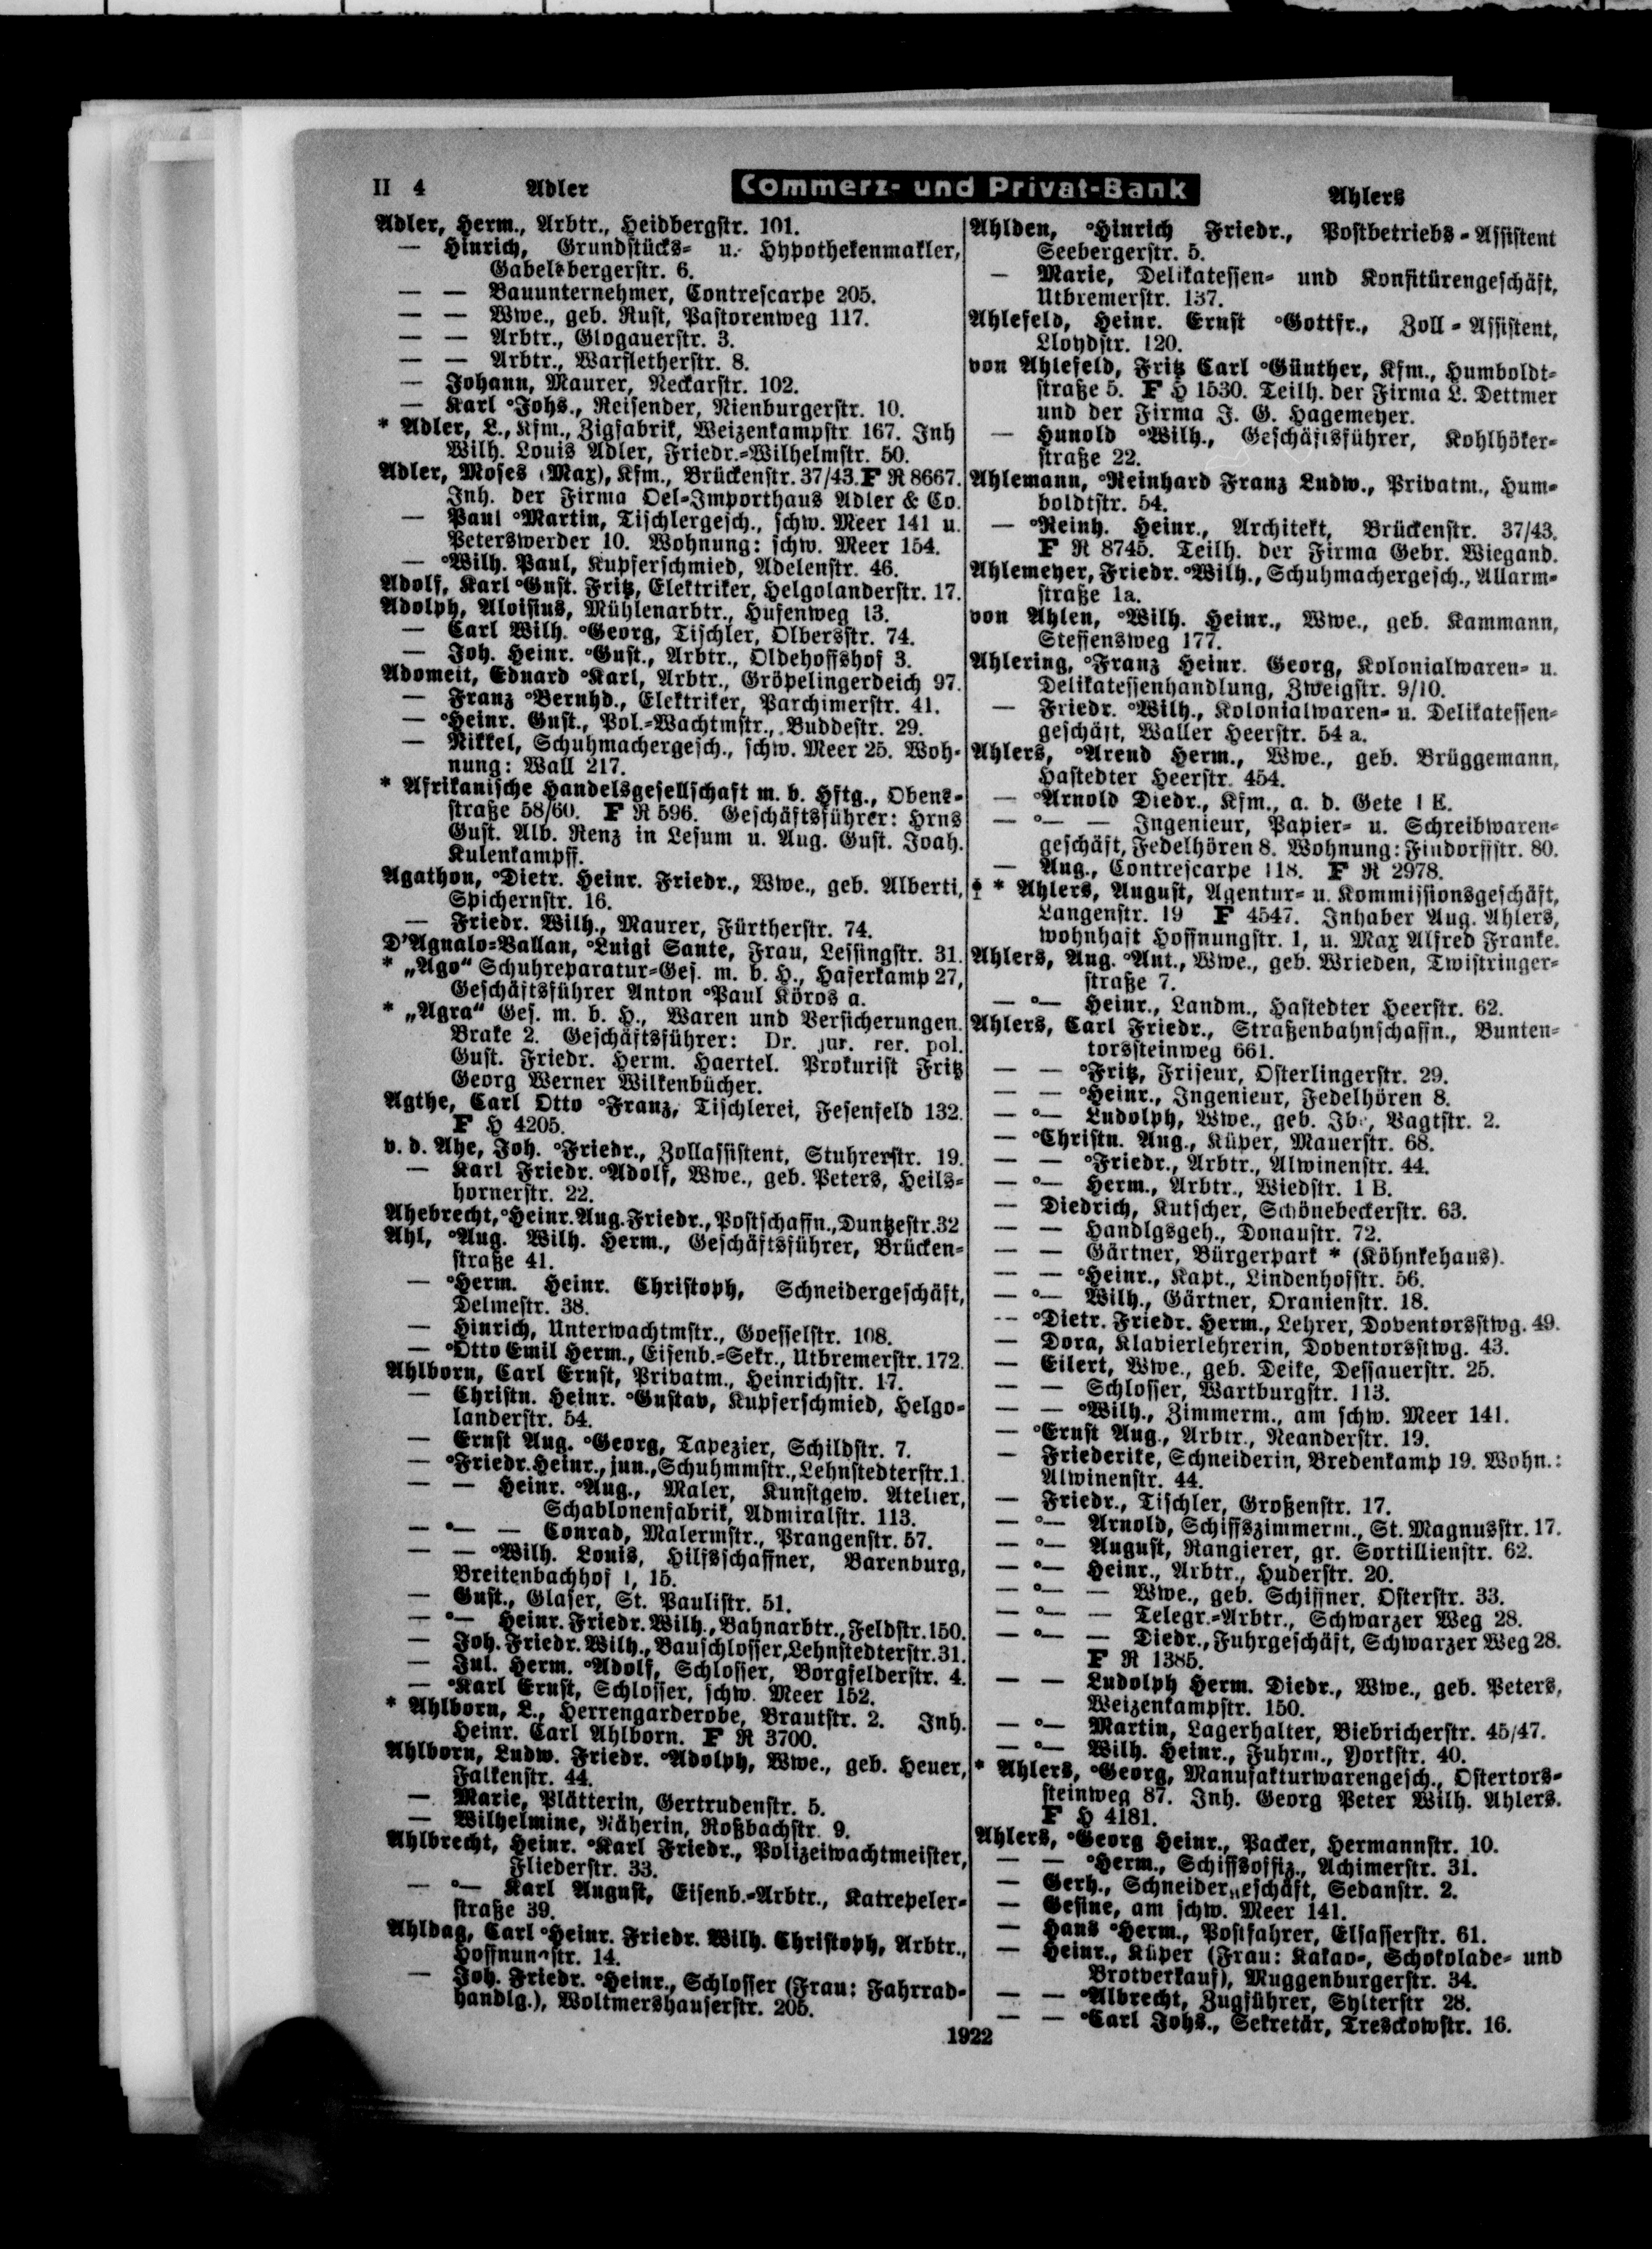 II 4 Adler Commerz- und Privat-Bank Ahlers
Adler, Herm., Arbtr., Heidbergstr. 101.
— Hinrich, Grundstücks- u. Hypothekenmakler,
Gabelsbergerstr. 6.
— — Bauunternehmer, Contrescarpe 205.
— — Wwe., geb. Rust, Pastorenweg 117.
— — Arbtr., Glogauerstr. 3.
— — Arbtr., Warfletherstr. 8.
— Johann, Maurer, Neckarstr. 102.
— Karl °Johs., Reisender, Nienburgerstr. 10.
* Adler, L., Kfm., Zigfabrik, Weizenkampstr. 167. Inh
Wilh. Louis Adler, Friedr.-Wilhelmstr. 50.
Adler, Moses (Max), Kfm., Brückenstr. 37/43. F R 8667.
Inh. der Firma Oel-Importhaus Adler & Co.
— Paul °Martin, Tischlergesch., schw. Meer 141 u.
Peterswerder 10. Wohnung: schw. Meer 154.
— °Wilh. Paul, Kupferschmied, Adelenstr. 46.
Adolf, Karl °Gust. Fritz, Elektriker, Helgolanderstr. 17.
Adolph, Aloisius, Mühlenarbtr., Hufenweg 13.
— Carl Wilh. °Georg, Tischler, Olbersstr. 74.
— Joh. Heinr. °Gust., Arbtr., Oldehoffshof 3.
Adomeit, Eduard °Karl, Arbtr., Gröpelingerdeich 97.
— Franz °Bernhd., Elektriker, Parchimerstr. 41.
— °Heinr. Gust., Pol.-Wachtmstr., Buddestr. 29.
— Nikkel, Schuhmachergesch., schw. Meer 25. Woh-
nung: Wall 217.
* Afrikanische Handelsgesellschaft m. b. Hftg., Obens-
straße 58/60. F R 596. Geschäftsführer: Hrns
Gust. Alb. Renz in Lesum u. Aug. Gust. Joah.
Kulenkampff.
Agathon, °Dietr. Heinr. Friedr., Wwe., geb. Alberti,
Spichernstr. 16.
— Friedr. Wilh., Maurer, Fürtherstr. 74.
D'Agnalo-Vallan, °Luigi Sante, Frau, Lessingstr. 31.
* „Ago“ Schuhreparatur-Ges. m. b. H., Haferkamp 27,
Geschäftsführer Anton °Paul Köros a.
* „Agra“ Ges. m. b. H., Waren und Versicherungen.
Brake 2. Geschäftsführer: Dr. jur. rer. pol.
Gust. Friedr. Herm. Haertel. Prokurist Fritz
Georg Werner Wilkenbücher.
Agthe, Carl Otto °Franz, Tischlerei, Fesenfeld 132.
F H 4205.
v. d. Ahe, Joh. °Friedr., Zollassistent, Stuhrerstr. 19.
— Karl Friedr. °Adolf, Wwe., geb. Peters, Heils-
hornerstr. 22.
Ahebrecht, °Heinr. Aug. Friedr., Postschaffn., Duntzestr. 32
Ahl, °Aug. Wilh. Herm., Geschäftsführer, Brücken-
straße 41.
— °Herm. Heinr. Christoph, Schneidergeschäft,
Delmestr. 38.
— Hinrich, Unterwachtmstr., Goesselstr. 108.
— °Otto Emil Herm., Eisenb.-Sekr., Utbremerstr. 172.
Ahlborn, Carl Ernst, Privatm., Heinrichstr. 17.
— Christn. Heinr. °Gustav, Kupferschmied, Helgo-
landerstr. 54.
— Ernst Aug. °Georg, Tapezier, Schildstr. 7.
— °Friedr. Heinr., jun., Schuhmmstr., Lehnstedterstr. 1.
— — Heinr. °Aug., Maler, Kunstgew. Atelier,
Schablonenfabrik, Admiralstr. 113.
— °— — Conrad, Malermstr., Prangenstr. 57.
— — °Wilh. Louis, Hilfsschaffner, Barenburg,
Breitenbachhof 1, 15.
— Gust., Glaser, St. Paulistr. 51.
— °— Heinr. Friedr. Wilh., Bahnarbtr., Feldstr. 150.
— Joh. Friedr. Wilh., Bauschlosser, Lehnstedterstr. 31.
— Jul. Herm. °Adolf, Schlosser, Borgfelderstr. 4.
— °Karl Ernst, Schlosser, schw. Meer 152.
* Ahlborn, L., Herrengarderobe, Brautstr. 2. Inh.
Heinr. Carl Ahlborn. F R 3700.
Ahlborn, Ludw. Friedr. °Adolph, Wwe., geb. Heuer,
Falkenstr. 44.
— Marie, Plätterin, Gertrudenstr. 5.
— Wilhelmine, Näherin, Roßbachstr. 9.
Ahlbrecht, Heinr. °Karl Friedr., Polizeiwachtmeister,
Fliederstr. 33.
— °— Karl August, Eisenb.-Arbtr., Katrepeler-
straße 39.
Ahldag, Carl °Heinr. Friedr. Wilh. Christoph, Arbtr.,
Hoffnungstr. 14.
— Joh. Friedr. °Heinr., Schlosser (Frau: Fahrrad-
handlg.), Woltmershauserstr. 205.
Ahlden, °Hinrich Friedr., Postbetriebs-Assistent
Seebergerstr. 5.
— Marie, Delikatessen- und Konfitürengeschäft,
Utbremerstr. 137.
Ahlefeld, Heinr. Ernst °Gottfr., Zoll-Assistent,
Lloydstr. 120.
von Ahlefeld, Fritz Carl °Günther, Kfm., Humboldt-
straße 5. F H 1530. Teilh. der Firma L. Dettmer
und der Firma J. G. Hagemeyer.
— Hunold °Wilh., Geschäftsführer, Kohlhöker-
straße 22.
Ahlemann, °Reinhard Franz Ludw., Privatm., Hum-
boldtstr. 54.
— °Reinh. Heinr., Architekt, Brückenstr. 37/43.
F R 8745. Teilh. der Firma Gebr. Wiegand.
Ahlemeyer, Friedr. °Wilh., Schuhmachergesch., Allarm-
straße 1a.
von Ahlen, °Wilh. Heinr., Wwe., geb. Kammann,
Steffensweg 177.
Ahlering, °Franz Heinr. Georg, Kolonialwaren- u.
Delikatessenhandlung, Zweigstr. 9/10.
— Friedr. °Wilh., Kolonialwaren- u. Delikatessen-
geschäft, Waller Heerstr. 54 a.
Ahlers, °Arend Herm., Wwe., geb. Brüggemann,
Hastedter Heerstr. 454.
— °Arnold Diedr., Kfm., a. d. Gete 1 E.
— °— — Ingenieur, Papier- u. Schreibwaren-
geschäft, Fedelhören 8. Wohnung: Findorffstr. 80.
— Aug., Contrescarpe 118. F R 2978.
* Ahlers, August, Agentur- u. Kommissionsgeschäft,
Langenstr. 19 F 4547. Inhaber Aug. Ahlers,
wohnhaft Hoffnungstr. 1, u. Max Alfred Franke.
Ahlers, Aug. °Ant., Wwe., geb. Wrieden, Twistringer-
straße 7.
— °— Heinr., Landm., Hastedter Heerstr. 62.
Ahlers, Carl Friedr., Straßenbahnschaffn., Bunten-
torssteinweg 661.
— — °Fritz, Friseur, Osterlingerstr. 29.
— — °Heinr., Ingenieur, Fedelhören 8.
— °— Ludolph, Wwe., geb. Vagtstr. 2.
— °Christn. Aug., Küper, Mauerstr. 68.
— — °Friedr., Arbtr., Alwinenstr. 44.
— °— Herm., Arbtr., Wiedstr. 1 B.
— Diedrich, Kutscher, Schönebeckerstr. 63.
— — Handlgsgeh., Donaustr. 72.
— — Gärtner, Bürgerpark * (Köhnkehaus).
— — °Heinr., Kapt., Lindenhofstr. 56.
— °— Wilh., Gärtner, Oranienstr. 18.
— °Dietr. Friedr. Herm., Lehrer, Doventorsstwg. 49.
— Dora, Klavierlehrerin, Doventorsstwg. 43.
— Eilert, Wwe., geb. Deike, Dessauerstr. 25.
— — Schlosser, Wartburgstr. 113.
— — °Wilh., Zimmerm., am schw. Meer 141.
— °Ernst Aug., Arbtr., Neanderstr. 19.
— Friederike, Schneiderin, Bredenkamp 19. Wohn.:
Alwinenstr. 44.
— Friedr., Tischler, Großenstr. 17.
— °— Arnold, Schiffszimmerm., St. Magnusstr. 17.
— °— August, Rangierer, gr. Sortillienstr. 62.
— °— Heinr., Arbtr., Huderstr. 20.
— °— — Wwe., geb. Schiffner, Osterstr. 33.
— °— — Telegr.-Arbtr., Schwarzer Weg 28.
— °— — Diedr., Fuhrgeschäft, Schwarzer Weg 28.
F R 1385.
— — Ludolph Herm. Diedr., Wwe., geb. Peters,
Weizenkampstr. 150.
— °— Martin, Lagerhalter, Biebricherstr. 45/47.
— °— Wilh. Heinr., Fuhrm., Yorkstr. 40.
* Ahlers, °Georg, Manufakturwarengesch., Ostertors-
steinweg 87. Inh. Georg Peter Wilh. Ahlers.
F H 4181.
Ahlers, °Georg Heinr., Packer, Hermannstr. 10.
— — °Herm., Schiffsoffiz., Achimerstr. 31.
— Gerh., Schneidergeschäft, Sedanstr. 2.
— Gesine, am schw. Meer 141.
— Hans °Herm., Postfahrer, Elsasserstr. 61.
— Heinr., Küper (Frau: Kakao-, Schokolade- und
Brotverkauf), Muggenburgerstr. 34.
— — °Albrecht, Zugführer, Sylterstr 28.
— — °Carl Johs., Sekretär, Tresckowstr. 16.
1922